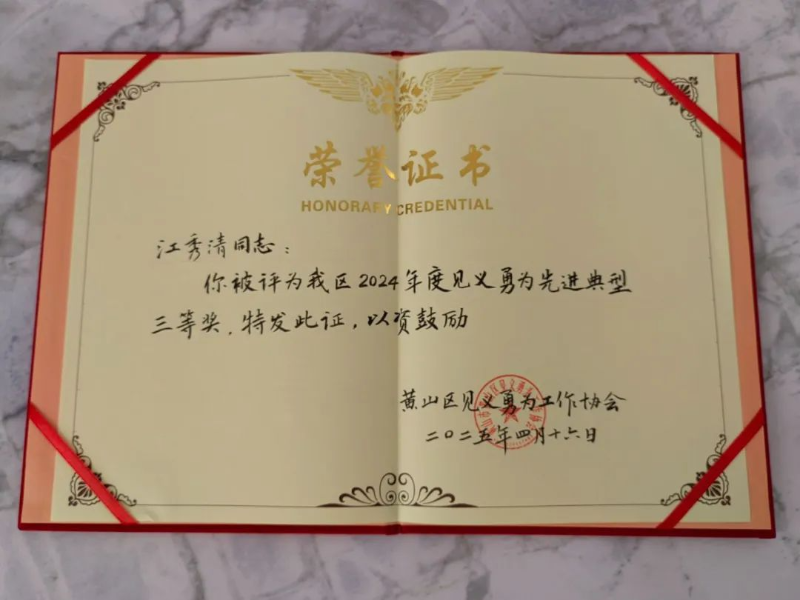 荣誉证书
HONORARY CREDENTIAL
江秀清同志：
你被评为我区2024年度见义勇为先进典型
三等奖，特发此证，以资鼓励
黄山区见义勇为工作协会
二〇二五年四月十六日